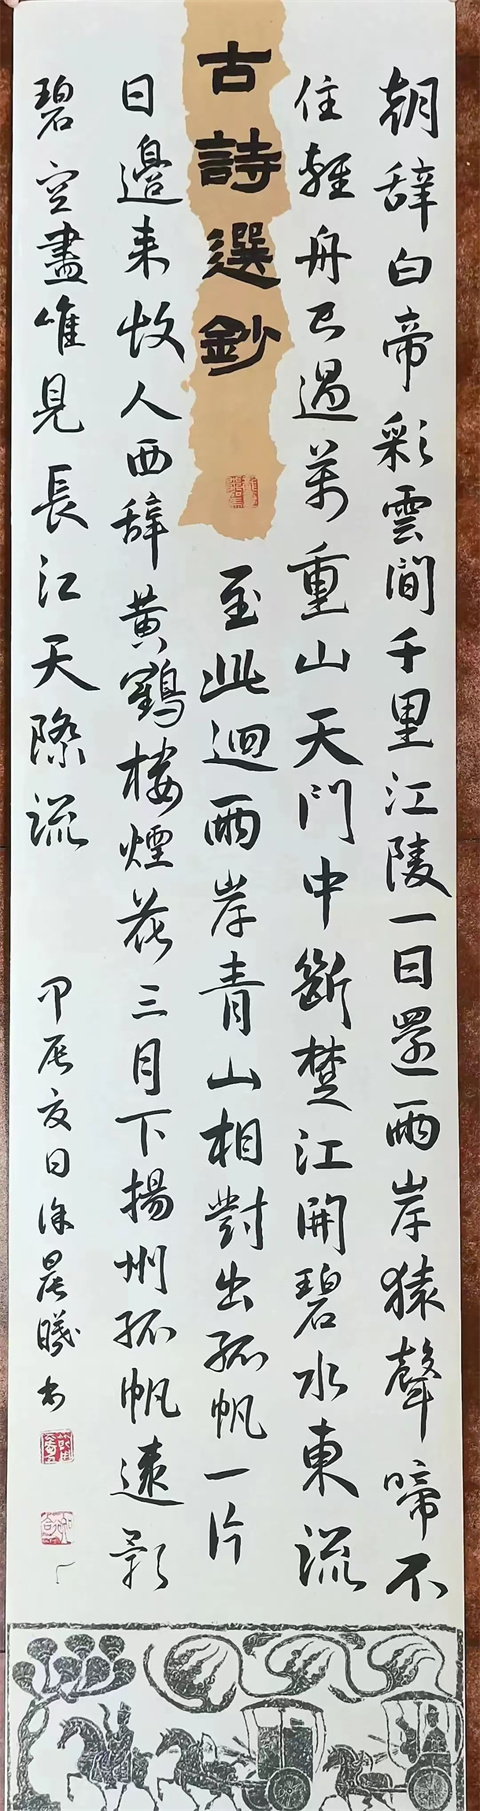 朝辞白帝彩雲間千里江陵一日還兩岸猿聲啼不
住輕舟已過萬重山天門中斷楚江開碧水東流
古詩選鈔
至此迴兩岸青山相對出孤帆一片
日邊来故人西辞黄鶴楼煙花三月下揚州孤帆遠影
碧空盡唯見長江天際流
甲辰夏日徐晨曦书